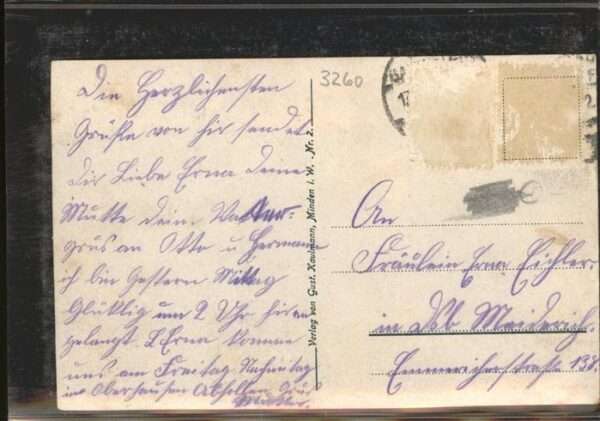 3260
Die Herzlichensten
Grüße von hir sendet
dir Liebe Erna deine
Mutte dein Vater
grus an Otto u Hermann
ich bin Gestern Mittag
Glüklig um 2 Uhr hir an
gelangt. L Erna komme
uns am Freitag Nachmittag
in Oberhausen Abhollen Gruß
Mutter.
Verlag von Gust. Kaulmann, Minden i. W. - Nr. 2.
An
Fräulein Erna Eichler.
in Meiderich.
Emmericherstraße 134